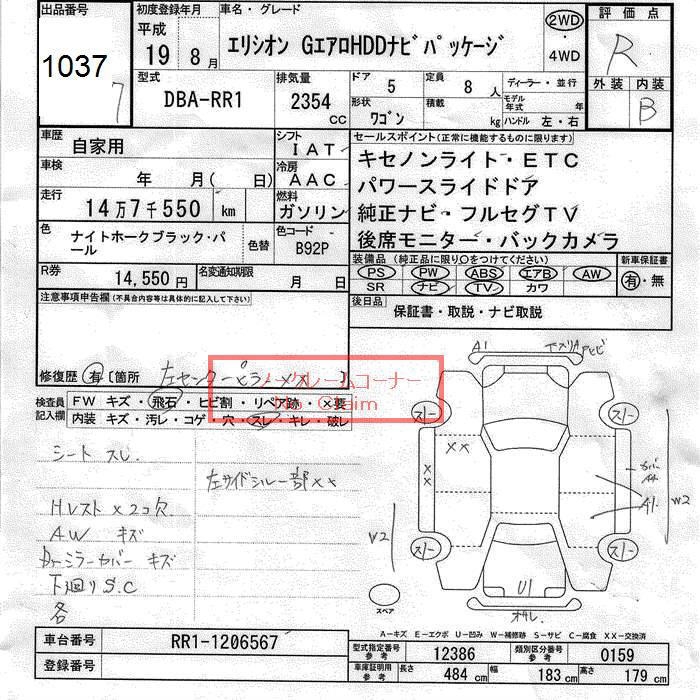 出品番号
1037
7
初度登録年月
平成
19 8 月
車名・グレード
エリシオン GエアロHDDナビパッケージ
2WD
4WD
評価点
R
外装 内装
B
型式
DBA-RR1
排気量
2354
CC
ドア 5
定員 8 人
ディーラー・並行
形状 ワゴン
積載 kg
モデル年式 年
ハンドル 左・右
車歴 自家用
シフト IAT
車検 年 月( 日)
冷房 AAC
走行 14万7千550 km
燃料 ガソリン
色 ナイトホークブラック・パール
色替
色コード B92P
R券 14,550円
名変通知期限 月 日
セールスポイント(正常に機能するものに限ります)
キセノンライト・ETC
パワースライドドア
純正ナビ・フルセグTV
後席モニター・バックカメラ
装備品(純正品に限り〇をつけてください)
新車保証書
PS PW ABS エアB AW
有・無
SR ナビ TV カワ
後日品
保証書・取説・ナビ取説
注意事項申告欄(不具合内容等は具体的に記入して下さい)
修復歴 有〔箇所 左センターピラー××〕
ノークレームコーナー
No Claim
検査員記入欄
FW キズ・飛石・ヒビ割・リペア跡・×要
内装 キズ・汚レ・コゲ・穴・スレ・キレ・破レ
シート スレ
左サイドシル一部××
Hレスト×2コ欠
AW キズ
ミラーカバー キズ
下廻りS.C
各
A1
スリー
スリー
××
××
W2
A1
W2
スリー
スリー
U1
スペア
A-キズ E-エクボ U-凹み W-補修跡 S-サビ C-腐食 XX-交換済
車台番号 RR1-1206567
登録番号
型式指定番号 参考 12386
類別区分番号 参考 0159
車庫証明用 参考 長さ 484 cm 幅 183 cm 高さ 179 cm